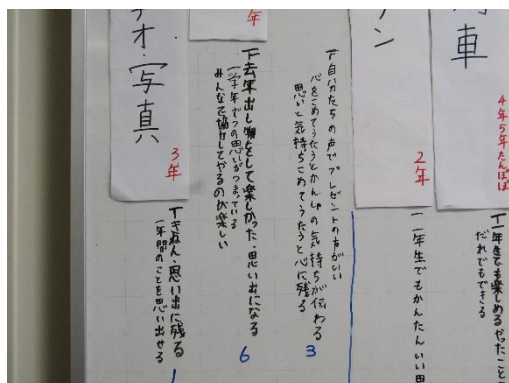 車
4年5年たんぽぽ
下一年生でも楽しめるかったこと
だれでもできる
ン
2年
一二年生でもかんたんいい思
下自分たちの声でプレゼントの声がいい
心をこめてうたうとかんしゃの気持ちが伝わる
思いと気持ちこめてうたうと心に残る
3
年
下去年出し物をして楽しかった・思い出になる
一学年ずつの思いがつまっている
みんなで協力してやるのが楽しい
6
オ・写真
3年
下きねん・思い出に残る
一年間のことを思い出せる